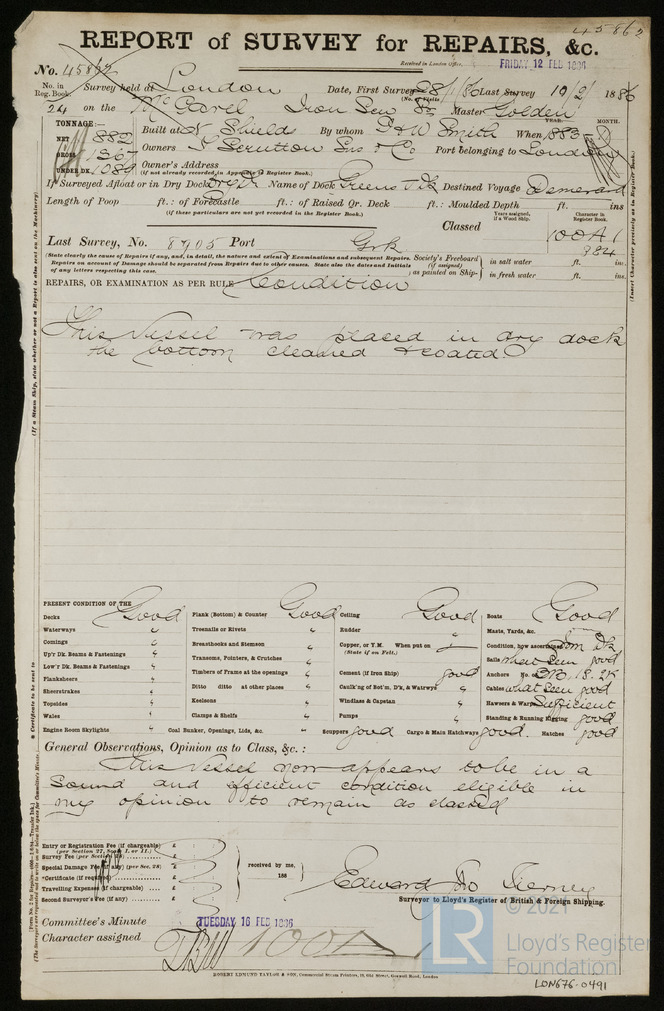 45862
REPORT of SURVEY for REPAIRS, &c.
No. 45862
Received in London Office, FRIDAY 12 FEB 1886
No. in Reg. Book. Survey held at London Date, First Survey 28/1/86 Last Survey 10/2/ 1886
(No. of Visits)
24 on the Iron Master Golden
TONNAGE:— YEAR. MONTH.
NET 882 Built at N Shields By whom T & W Smith When 1883
GROSS Owners Scrutton Sons & Co Port belonging to London
UNDER DK. 1089 Owner's Address
(If not already recorded in Appendix to Register Book.)
If Surveyed Afloat or in Dry Dock Dry Dk Name of Dock Greens Dk Destined Voyage Demerara
Length of Poop ft.: of Forecastle ft.: of Raised Qr. Deck ft.: Moulded Depth ft. ins
(if these particulars are not yet recorded in the Register Book.)
Years assigned, if a Wood Ship. Character in Register Book.
Classed 100A1
Last Survey, No. 8905 Port Grk
384
(State clearly the cause of Repairs if any, and, in detail, the nature and extent of Examinations and subsequent Repairs. Repairs on account of Damage should be separated from Repairs due to other causes. State also the dates and Initials of any letters respecting this case.
Society's Freeboard (if assigned) as painted on Ship- in salt water ft. in.
in fresh water ft. ins.
REPAIRS, OR EXAMINATION AS PER RULE Condition
This Vessel was placed in dry dock
the bottom cleaned & coated.
PRESENT CONDITION OF THE
Decks Good
Waterways "
Comings "
Up'r Dk. Beams & Fastenings "
Low'r Dk. Beams & Fastenings "
Planksheers "
Sheerstrakes "
Topsides "
Wales "
Engine Room Skylights "
Plank (Bottom) & Counter Good
Treenails or Rivets "
Breasthooks and Stemson "
Transoms, Pointers, & Crutches "
Timbers of Frame at the openings "
Ditto ditto at other places "
Keelsons "
Clamps & Shelfs "
Coal Bunker, Openings, Lids, &c. "
Ceiling Good
Rudder "
Copper, or Y.M. When put on
(State if on Felt.)
Cement (if Iron Ship) good
Caulk'ng of Bot'm, D'k, & Watrwys "
Windlass & Capstan "
Pumps "
Scuppers good Cargo & Main Hatchways good. Hatches good
Boats Good
Masts, Yards, &c.
Condition, how ascertained from Dk
Sails what seen good
Anchors No. of 3B. 1S. 2K
Cables what seen good
Hawsers & Warps Sufficient
Standing & Running Rigging good
General Observations, Opinion as to Class, &c. :
This Vessel now appears to be in a
sound and efficient condition eligible in
my opinion to remain as classed
Entry or Registration Fee (if chargeable) £
(per Section 27, Secs. I. or II.)
Survey Fee (per Section 28) £
Special Damage Fee (if any) (per Sec. 28) £
*Certificate (if required) £
Travelling Expenses (if chargeable) £
Second Surveyor's Fee (if any) £
received by me,
188
Edward Jno Tierney
Surveyor to Lloyd's Register of British & Foreign Shipping.
Committee's Minute TUESDAY 16 FEB 1886
Character assigned 100A1
ROBERT EDMUND TAYLOR & SON, Commercial Steam Printers, 19, Old Street, Goswell Road, London
(If a Steam Ship, state whether or not a Report is also sent on the Machinery)
(Insert Character precisely as in the Register Book.)
© 2021
LR
Lloyd's Register
Foundation
LDN676-0491